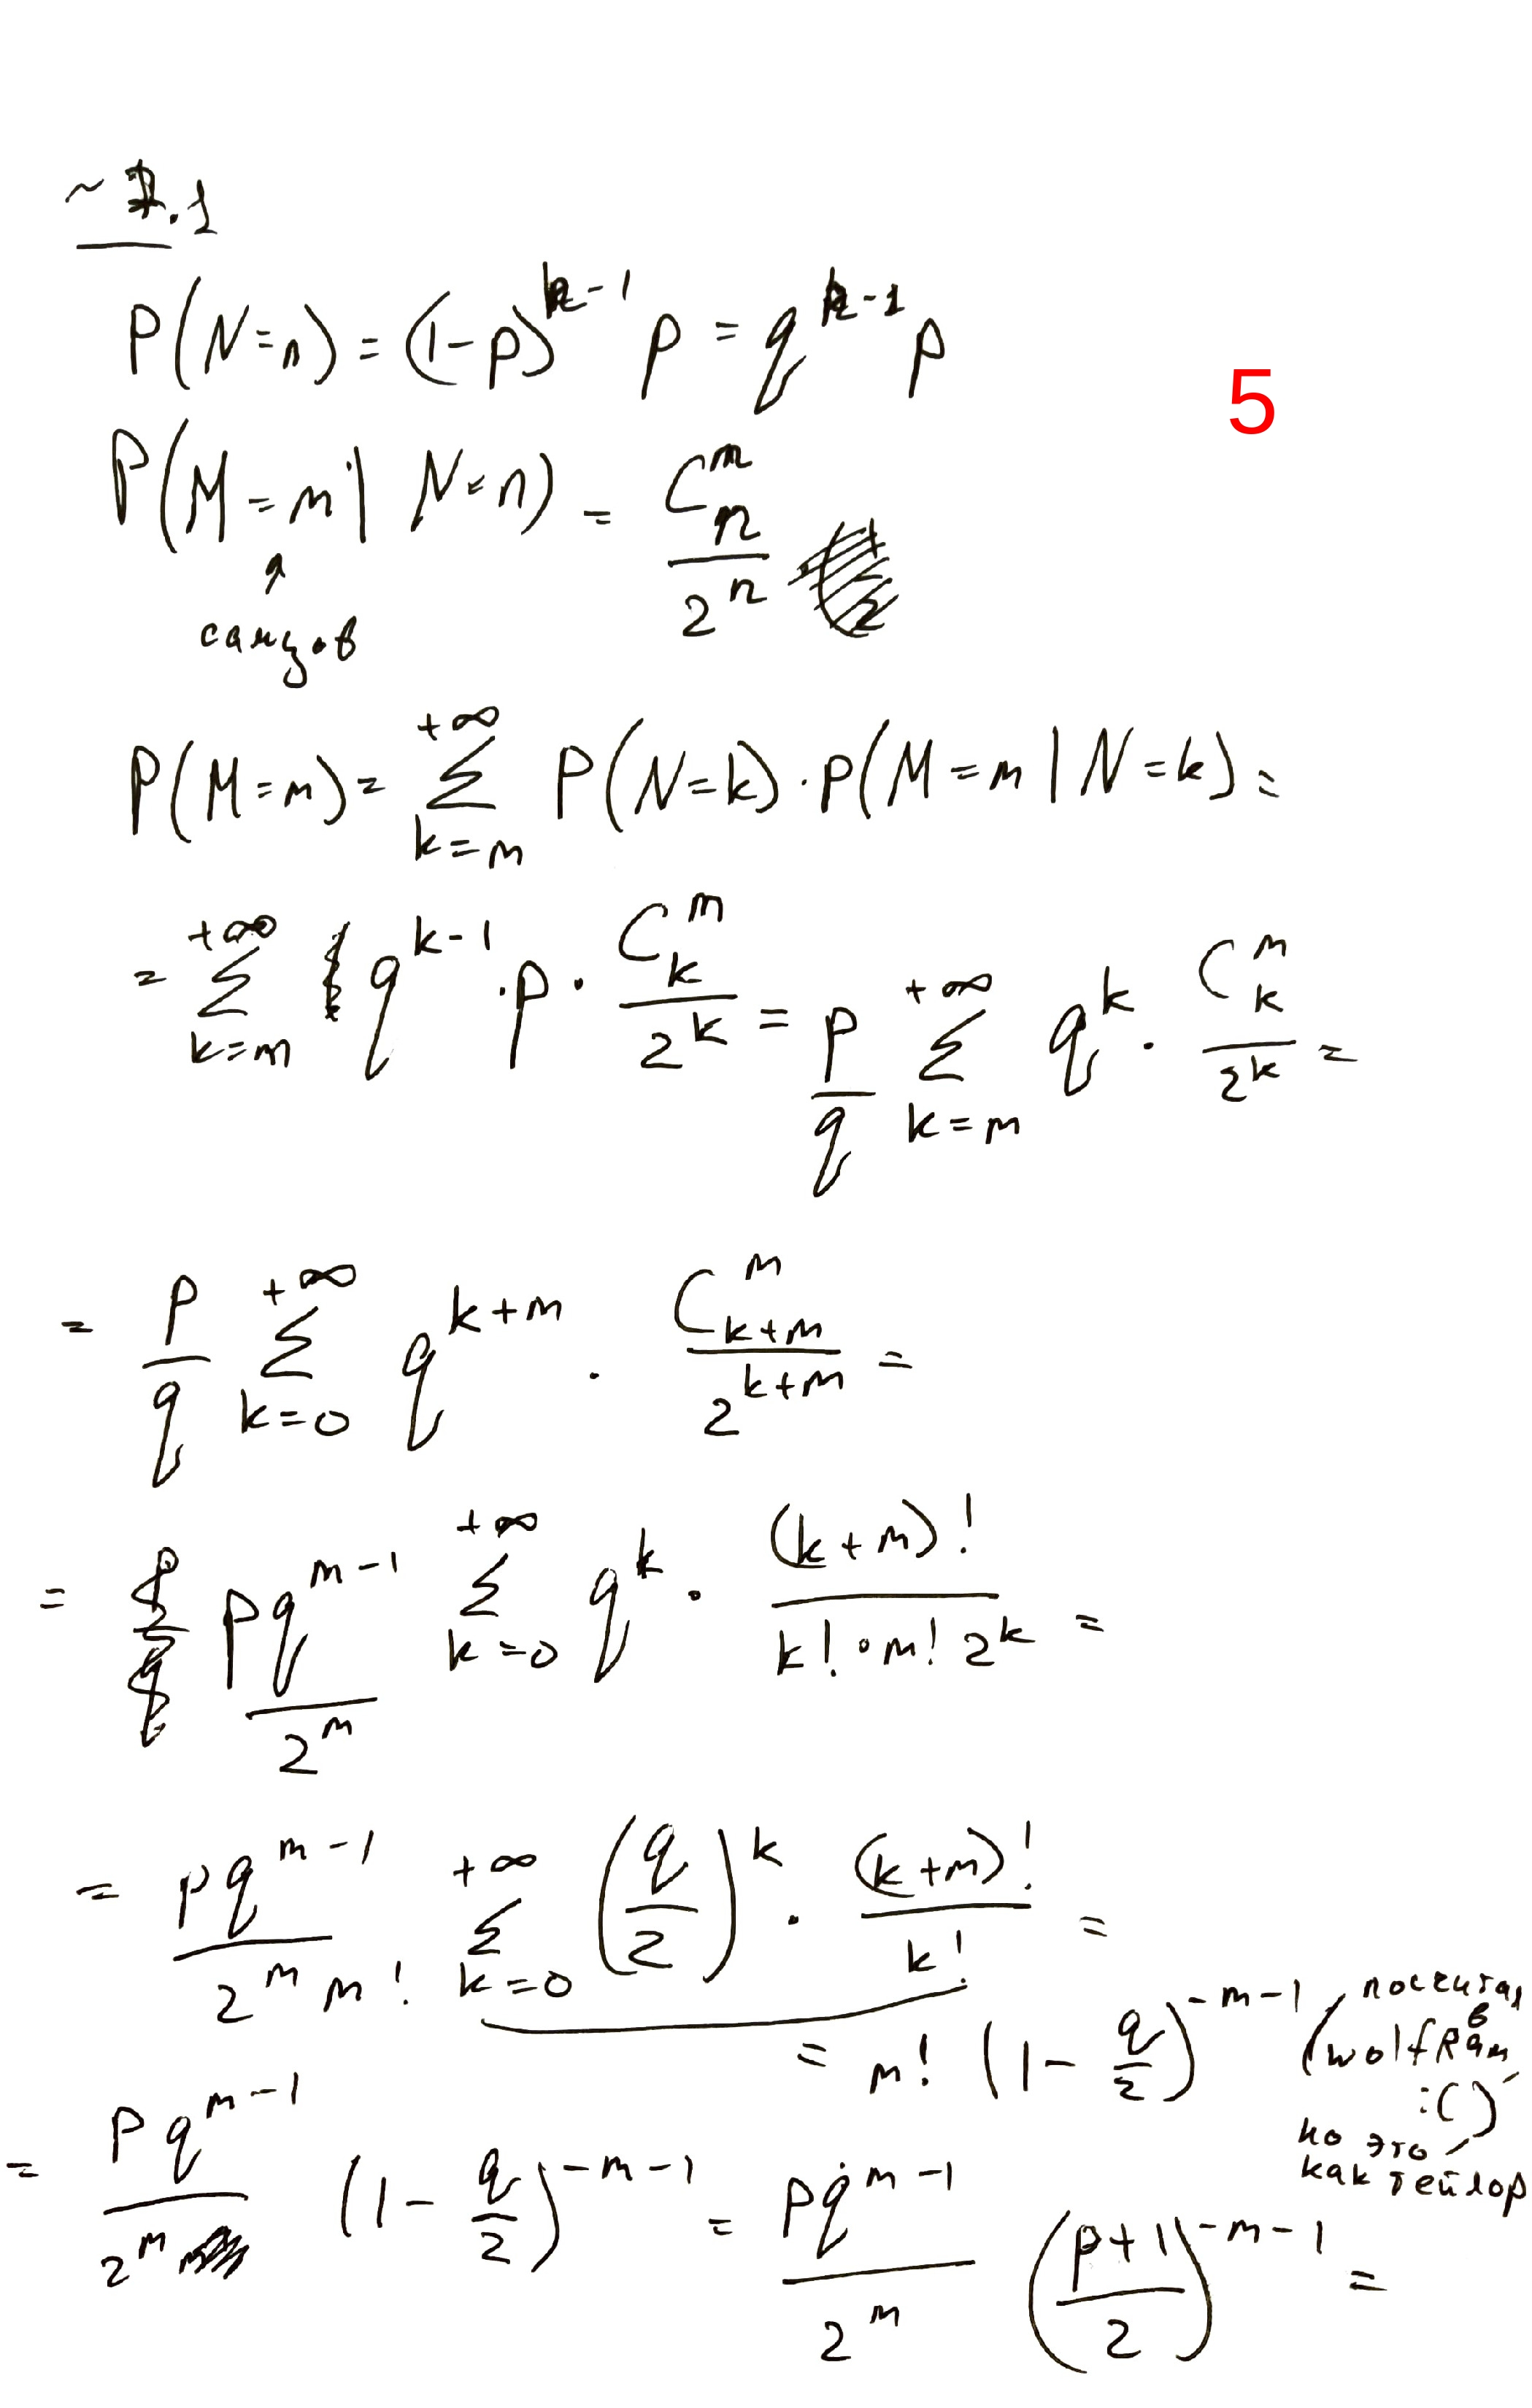 ~ 7.1
P(N=n) = (1-p)^{n-1} p = q^{n-1} p
5
P(M=m | N=n) = C_n^m / 2^n
↑
самцов
P(M=m) = \sum_{k=m}^{+∞} P(N=k) · P(M=m | N=k) =
= \sum_{k=m}^{+∞} q^{k-1} · p · C_k^m / 2^k = p/q \sum_{k=m}^{+∞} q^k · C_k^m / 2^k =
= p/q \sum_{k=0}^{+∞} q^{k+m} · C_{k+m}^m / 2^{k+m} =
= pq^{m-1} / 2^m \sum_{k=0}^{+∞} q^k · (k+m)! / (k! · m! 2^k) =
= pq^{m-1} / (2^m m!) \sum_{k=0}^{+∞} (q/2)^k · (k+m)! / k! =
= m! (1 - q/2)^{-m-1} (посчитал
в
wolfram
:( )
но это
как тейлор
= pq^{m-1} / 2^m (1 - q/2)^{-m-1} = pq^{m-1} / 2^m ((p+1)/2)^{-m-1} =